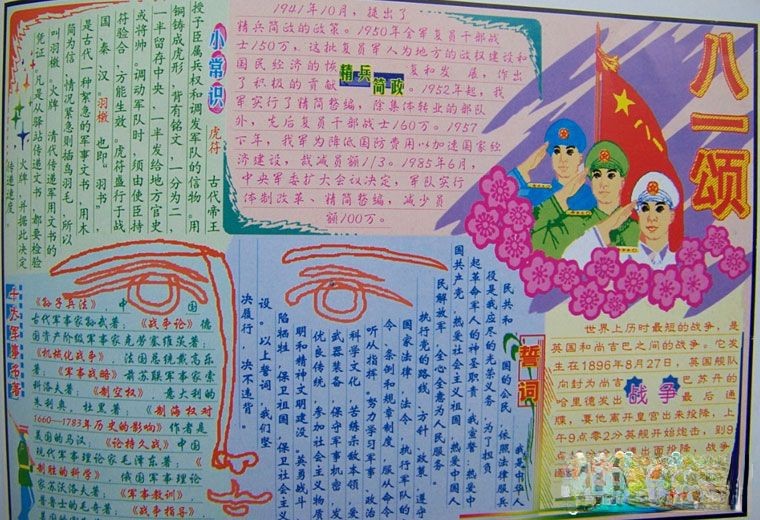 八一颂
1941年10月，提出了
精兵简政的政策。1950年全军复员干部战
士150万，这批复员军人为地方的政权建设和
国民经济的恢复和发展，作出
了积极的贡献。1952年起，我
军实行了精简整编，除集体转业的部队
外，先后复员干部战士160万。1957
下年，我军为降低国防费用以加速国家经
济建设，裁减员额1/3。1985年6月，
中央军委扩大会议决定，军队实行
体制改革、精简整编，减少员
额100万。
精兵简政
小常识
虎符 古代帝王
授于臣属兵权和调发军队的信物。用
铜铸成虎形，背有铭文，一分为二，
一半留存中央，一半发给地方官史
或将帅。调动军队时，须由使臣持
符验合，方能生效。虎符盛行于战
国 秦 汉。羽檄 也即 羽书
是古代一种紧急的军事文书，用木
简为信，情况紧急则插鸟羽毛，所以
叫羽檄。火牌 清代传递军用文书的
凭证，凡是从驿站传递文书，都要检验
火牌，并据此决定
传递速度。
军事名著
《孙子兵法》，中国
古代军事家孙武著；《战争论》德
国资产阶级军事家克劳塞维茨著；
《机械化战争》 法国总统戴高乐
著；《军事战略》 前苏联军事家索
科洛夫著；《制空权》 意大利的
朱利奥，杜黑著；《制海权对
1660—1783年历史的影响》作者是
美国的马汉；《论持久战》中国
现代军事理论家毛泽东著；《
制胜的科学》，俄国军事理论
家苏沃洛夫著；《军事教训》
普鲁士的毛奇著；《战争指导》
誓词
我是中华人
民共和国的公民，依照法律服兵
役是我应尽的光荣义务，为了担负
起革命军人的神圣职责，我宣誓，热爱中
国共产党，热爱社会主义祖国，热爱中国人
民解放军，全心全意为人民服务，
执行党的路线，方针，政策，遵守
国家法律，法令，执行军队的
条令、条例和规章制度，服从命令，
听从指挥，努力学习军事，政治
科学文化，苦练杀敌本领，爱护
武器装备，保守军事机密，发扬
优良传统，参加社会主义物质文
明和精神文明建设。英勇战斗，
保卫祖国，保卫社会主义建
设。以上誓词，我们坚
决履行，决不违背。
世界上历时最短的战争，是
英国和尚吉巴之间的战争。它发
生在1896年8月27日，英国舰队
向封为尚吉巴苏丹的
哈里德发出最后通
牒，要他离开皇宫出来投降，上
午9点零2分英舰开始炮击，到9
战争